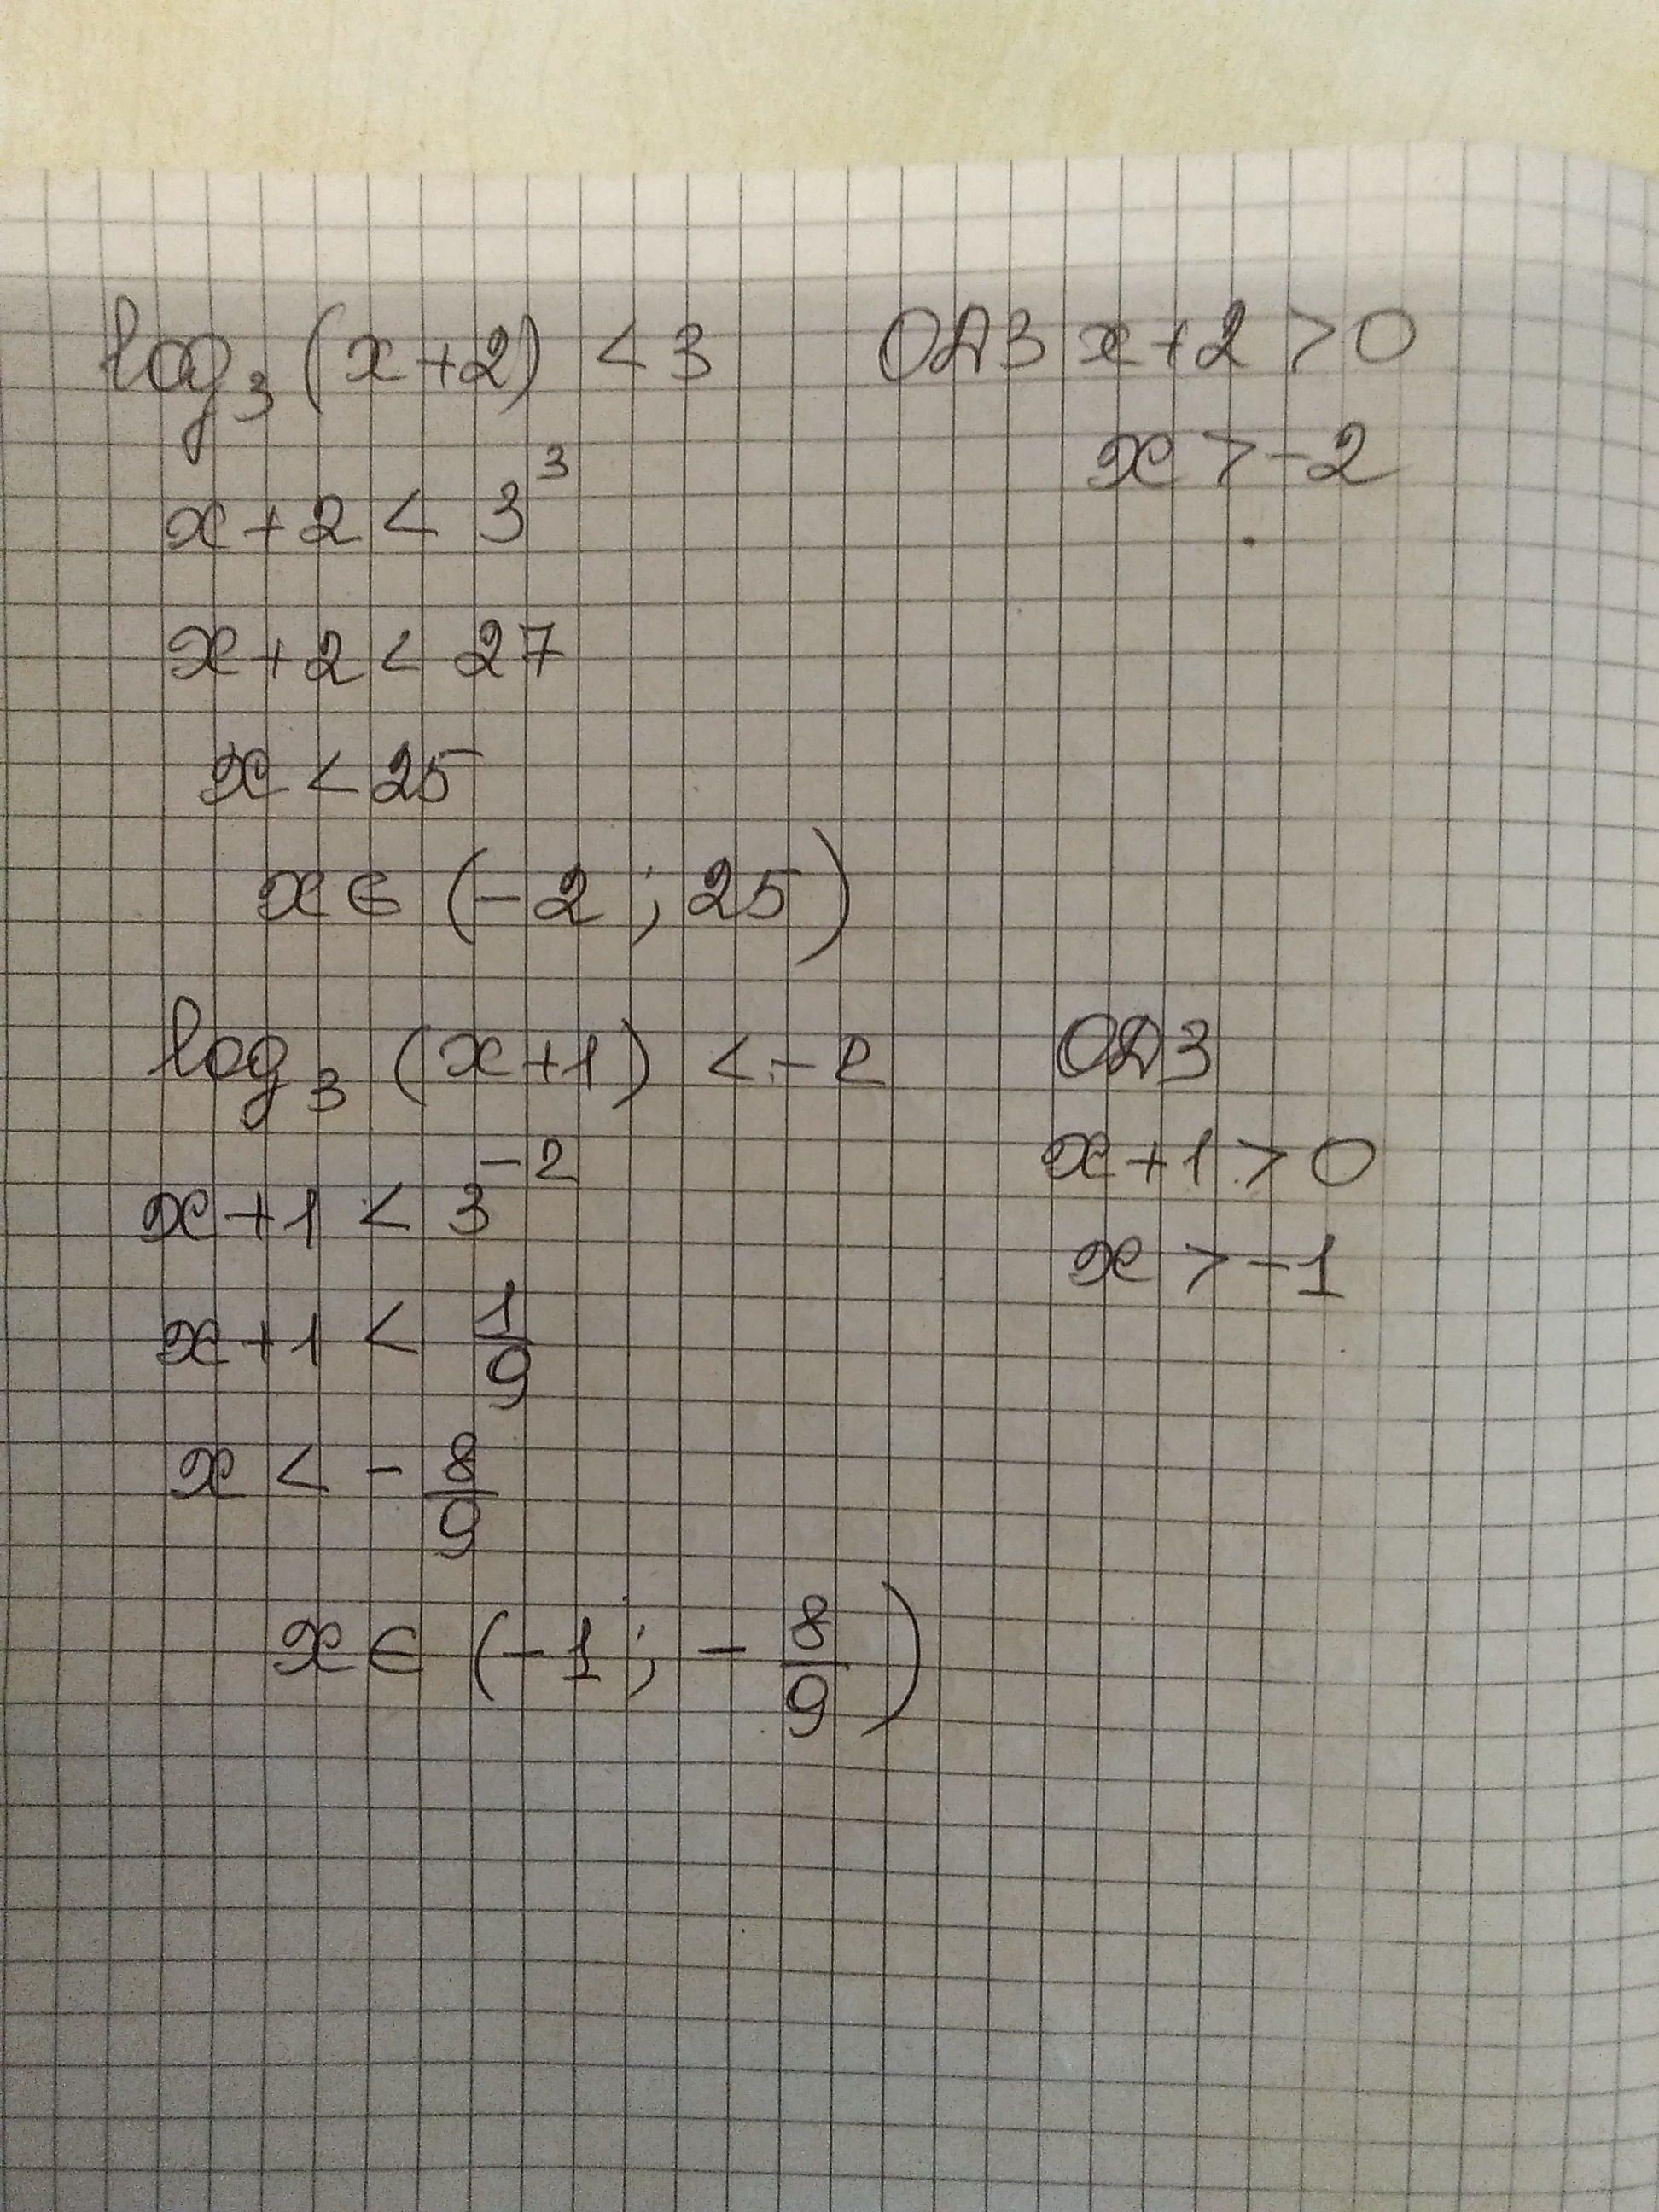 log₃ (x+2) < 3 ОДЗ x+2 > 0
x > -2
x+2 < 3³
x+2 < 27
x < 25
x ∈ (-2 ; 25)
log₃ (x+1) < -2 ОДЗ
x+1 < 3⁻² x+1 > 0
x > -1
x+1 < 1/9
x < - 8/9
x ∈ (-1 ; - 8/9)